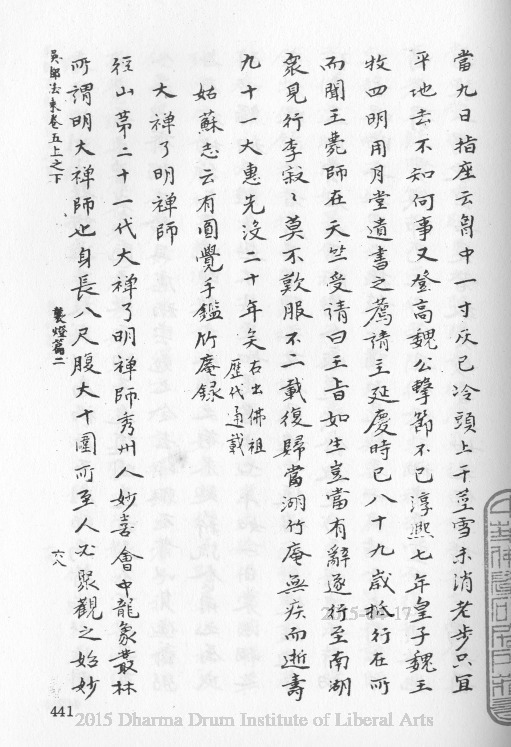 當九日指座云胷中一寸灰已冷頭上千莖雪未消老步只宜
平地去不知何事又登高魏公擊節不已淳熙七年皇子魏王
牧四明用月堂遺書之薦請主延慶時已八十九歲抵行在所
而聞王薨師在天竺受請曰王旨如生豈當有辭遂行至南湖
衆見行李寂〻莫不歎服不二載復歸當湖竹庵無疾而逝壽
九十一大惠先沒二十年矣 右出佛祖
歷代通載
姑蘇志云有圓覺手鑑竹庵録
大禪了明禪師
徑山第二十一代大禪了明禪師秀州人妙喜會中龍象叢林
所謂明大禪師也身長八尺腹大十圍所至人必聚觀之始妙
吳都法乘卷五上之下
襲燈篇二
六八
441
2015-04-17
2015 Dharma Drum Institute of Liberal Arts